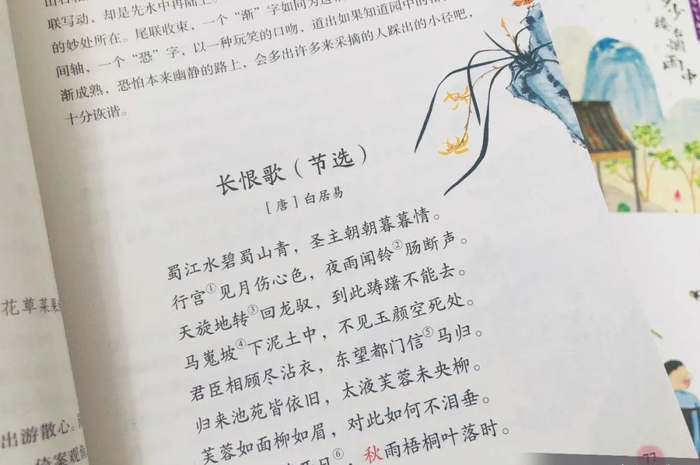 联写动，却是先水中再陆上。
的妙处所在。尾联收束，一个“渐”字如同为这
间轴，一个“恐”字，以一种玩笑的口吻，道出如果知道园中的
渐成熟，恐怕本来幽静的路上，会多出许多来采摘的人踩出的小径吧，
十分诙谐。
长恨歌（节选）
［唐］白居易
蜀江水碧蜀山青，圣主朝朝暮暮情。
行宫①见月伤心色，夜雨闻铃②肠断声。
天旋地转③回龙驭，到此踌躇不能去。
马嵬坡④下泥土中，不见玉颜空死处。
君臣相顾尽沾衣，东望都门信⑤马归。
归来池苑皆依旧，太液芙蓉未央柳。
芙蓉如面柳如眉，对此如何不泪垂。
日⑥，秋雨梧桐叶落时。
花草菜果
出游散心。
倚案观
烟雨中
77